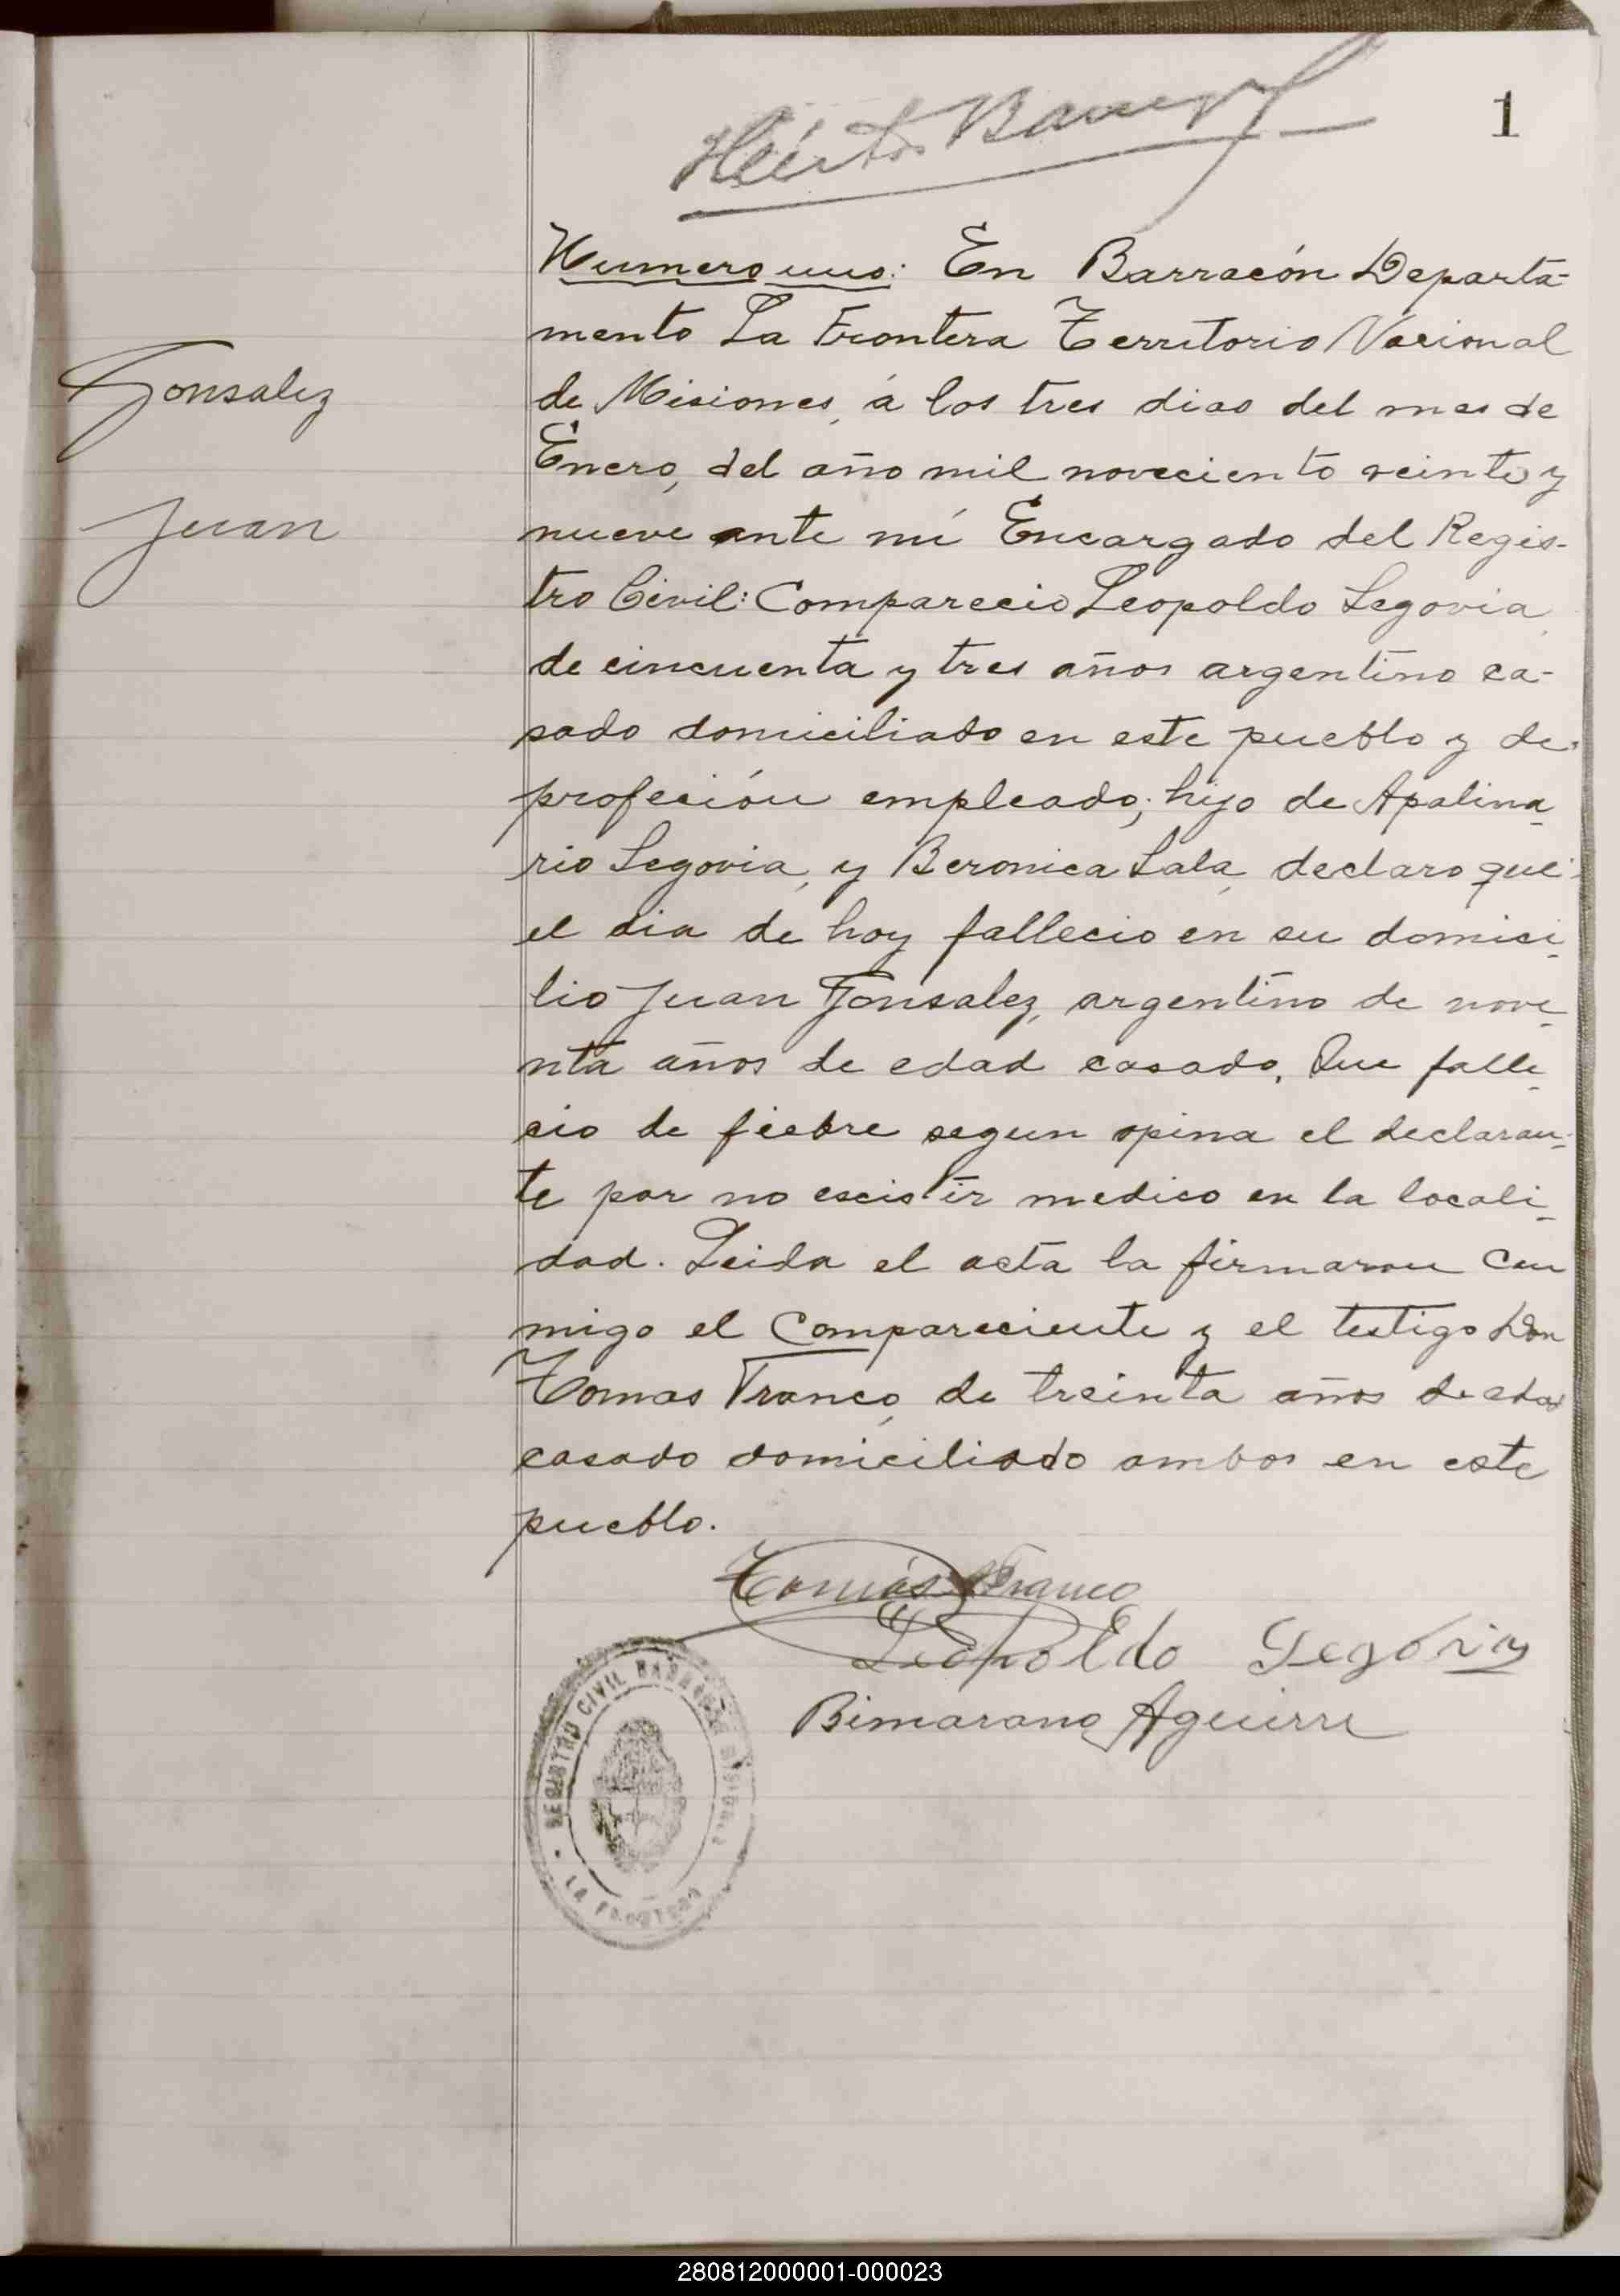 1
Gonsalez
Juan
Numero uno: En Barracón Departa-
mento La Frontera Territorio Nacional
de Misiones, á los tres dias del mes de
Enero, del año mil noveciento veinte y
nueve ante mi Encargado del Regis-
tro Civil: Comparecio Leopoldo Segovia,
de cincuenta y tres años argentino ca-
sado domiciliado en este pueblo y de
profeción empleado; hijo de Apalina
rio Segovia, y Beronica Sala, declaro que:
el dia de hoy fallecio en su domici
lio Juan Gonsalez, argentino de nove
nta años de edad casado. Que falle
cio de fiebre segun opina el declaran-
te por no escistir medico en la locali
dad. Leida el acta la firmaron con
migo el Compareciente y el testigo Don
Tomas Franco, de treinta años de edad
casado domiciliado ambos en este
pueblo.
Tomás Franco
Leopoldo Segovia
Bimarano Aguirre
REGISTRO CIVIL BARRACON MISIONES
LA FRONTERA
280812000001-000023